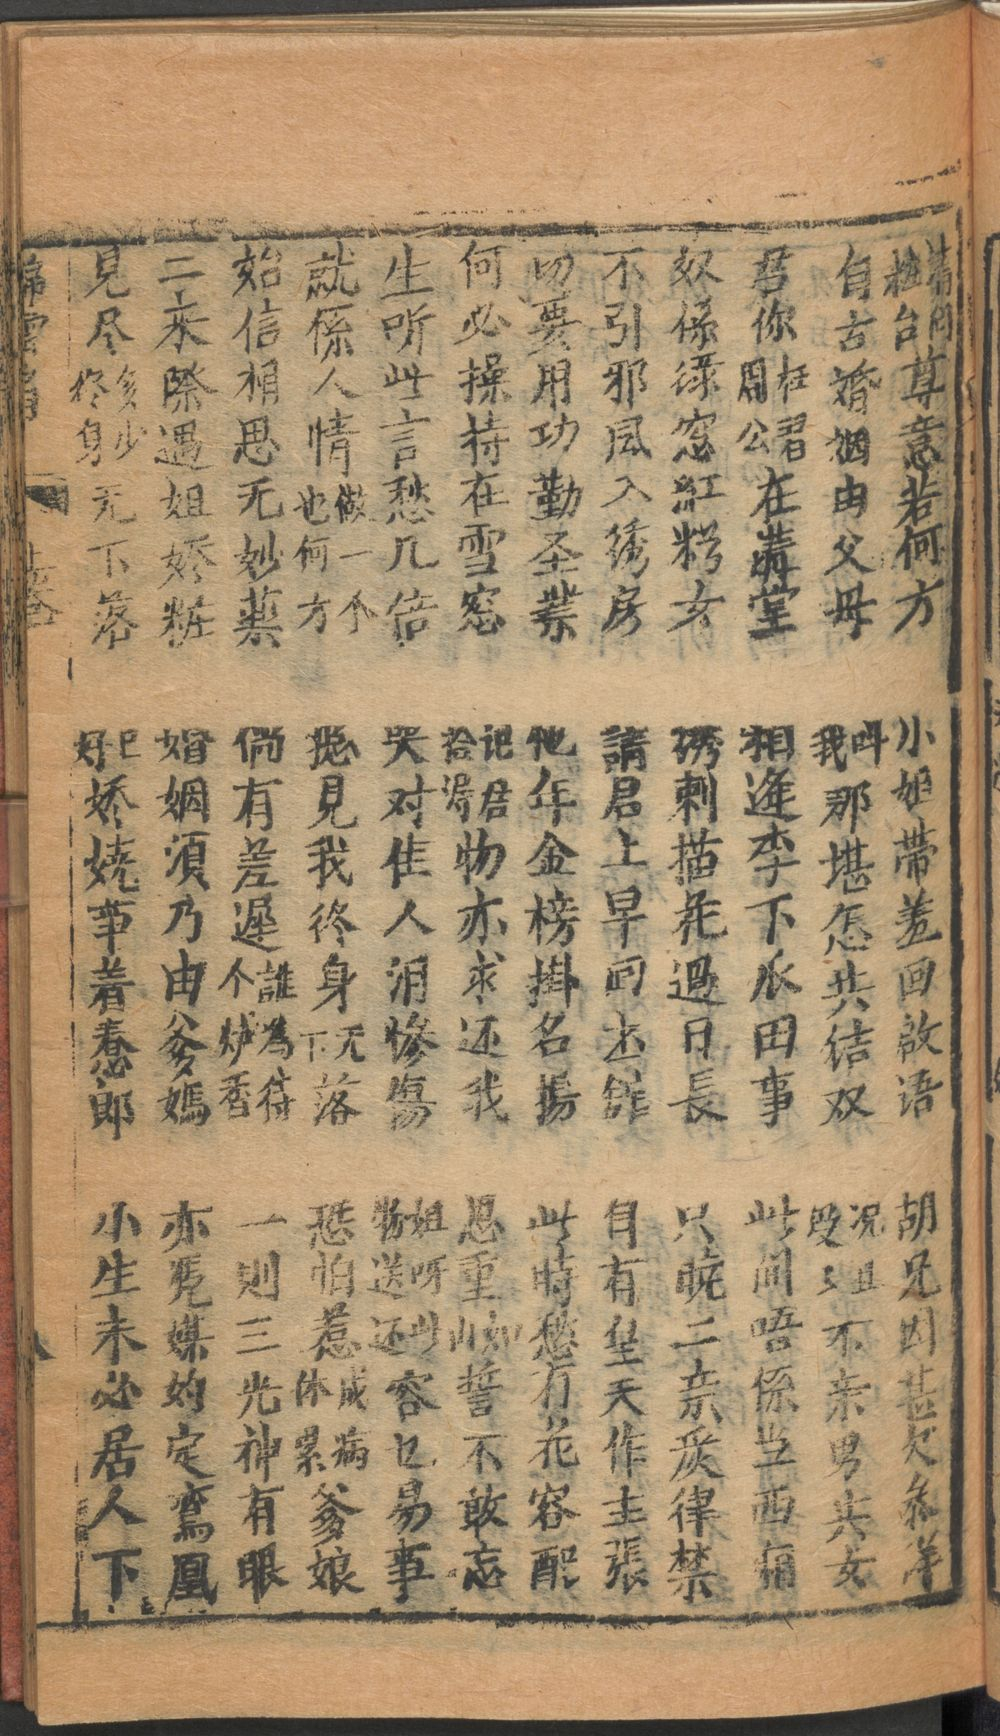 粧台尊意若何方
小姐帶羞回啟语
胡兄因甚欠参详
自古婚姻由父母
呌我那堪怎共结双
况且受受不亲男共女
君你枉君周公在講堂
相逢李下瓜田事
此间唔係当西廂
奴係绿窓紅粉女
綉刺描花過日長
只晓二亲炭律禁
不引邪風入綉房
請君上早回去舘
自有皇天作主張
切要用功勤圣業
他年金榜掛名揚
此時愁冇花容配
何必操持在雪窓
记君拾得物亦求还我
恩重如山誓不敢忘
生听此言愁几倍
哭对佳人泪惨傷
姐呀此物送还容乜易事
就係人情做一个也何方
㧾見我終身无下落
恐怕惹成病休累爹娘
始信相思无妙薬
倘有差遲誰為待个炉香
一則三光神有眼
二来際遇姐娇粧
婚姻須乃由爹媽
亦凴媒妁定鸞凰
見尽多少終身无下落
娇娆事着愚郎
小生未必居人下